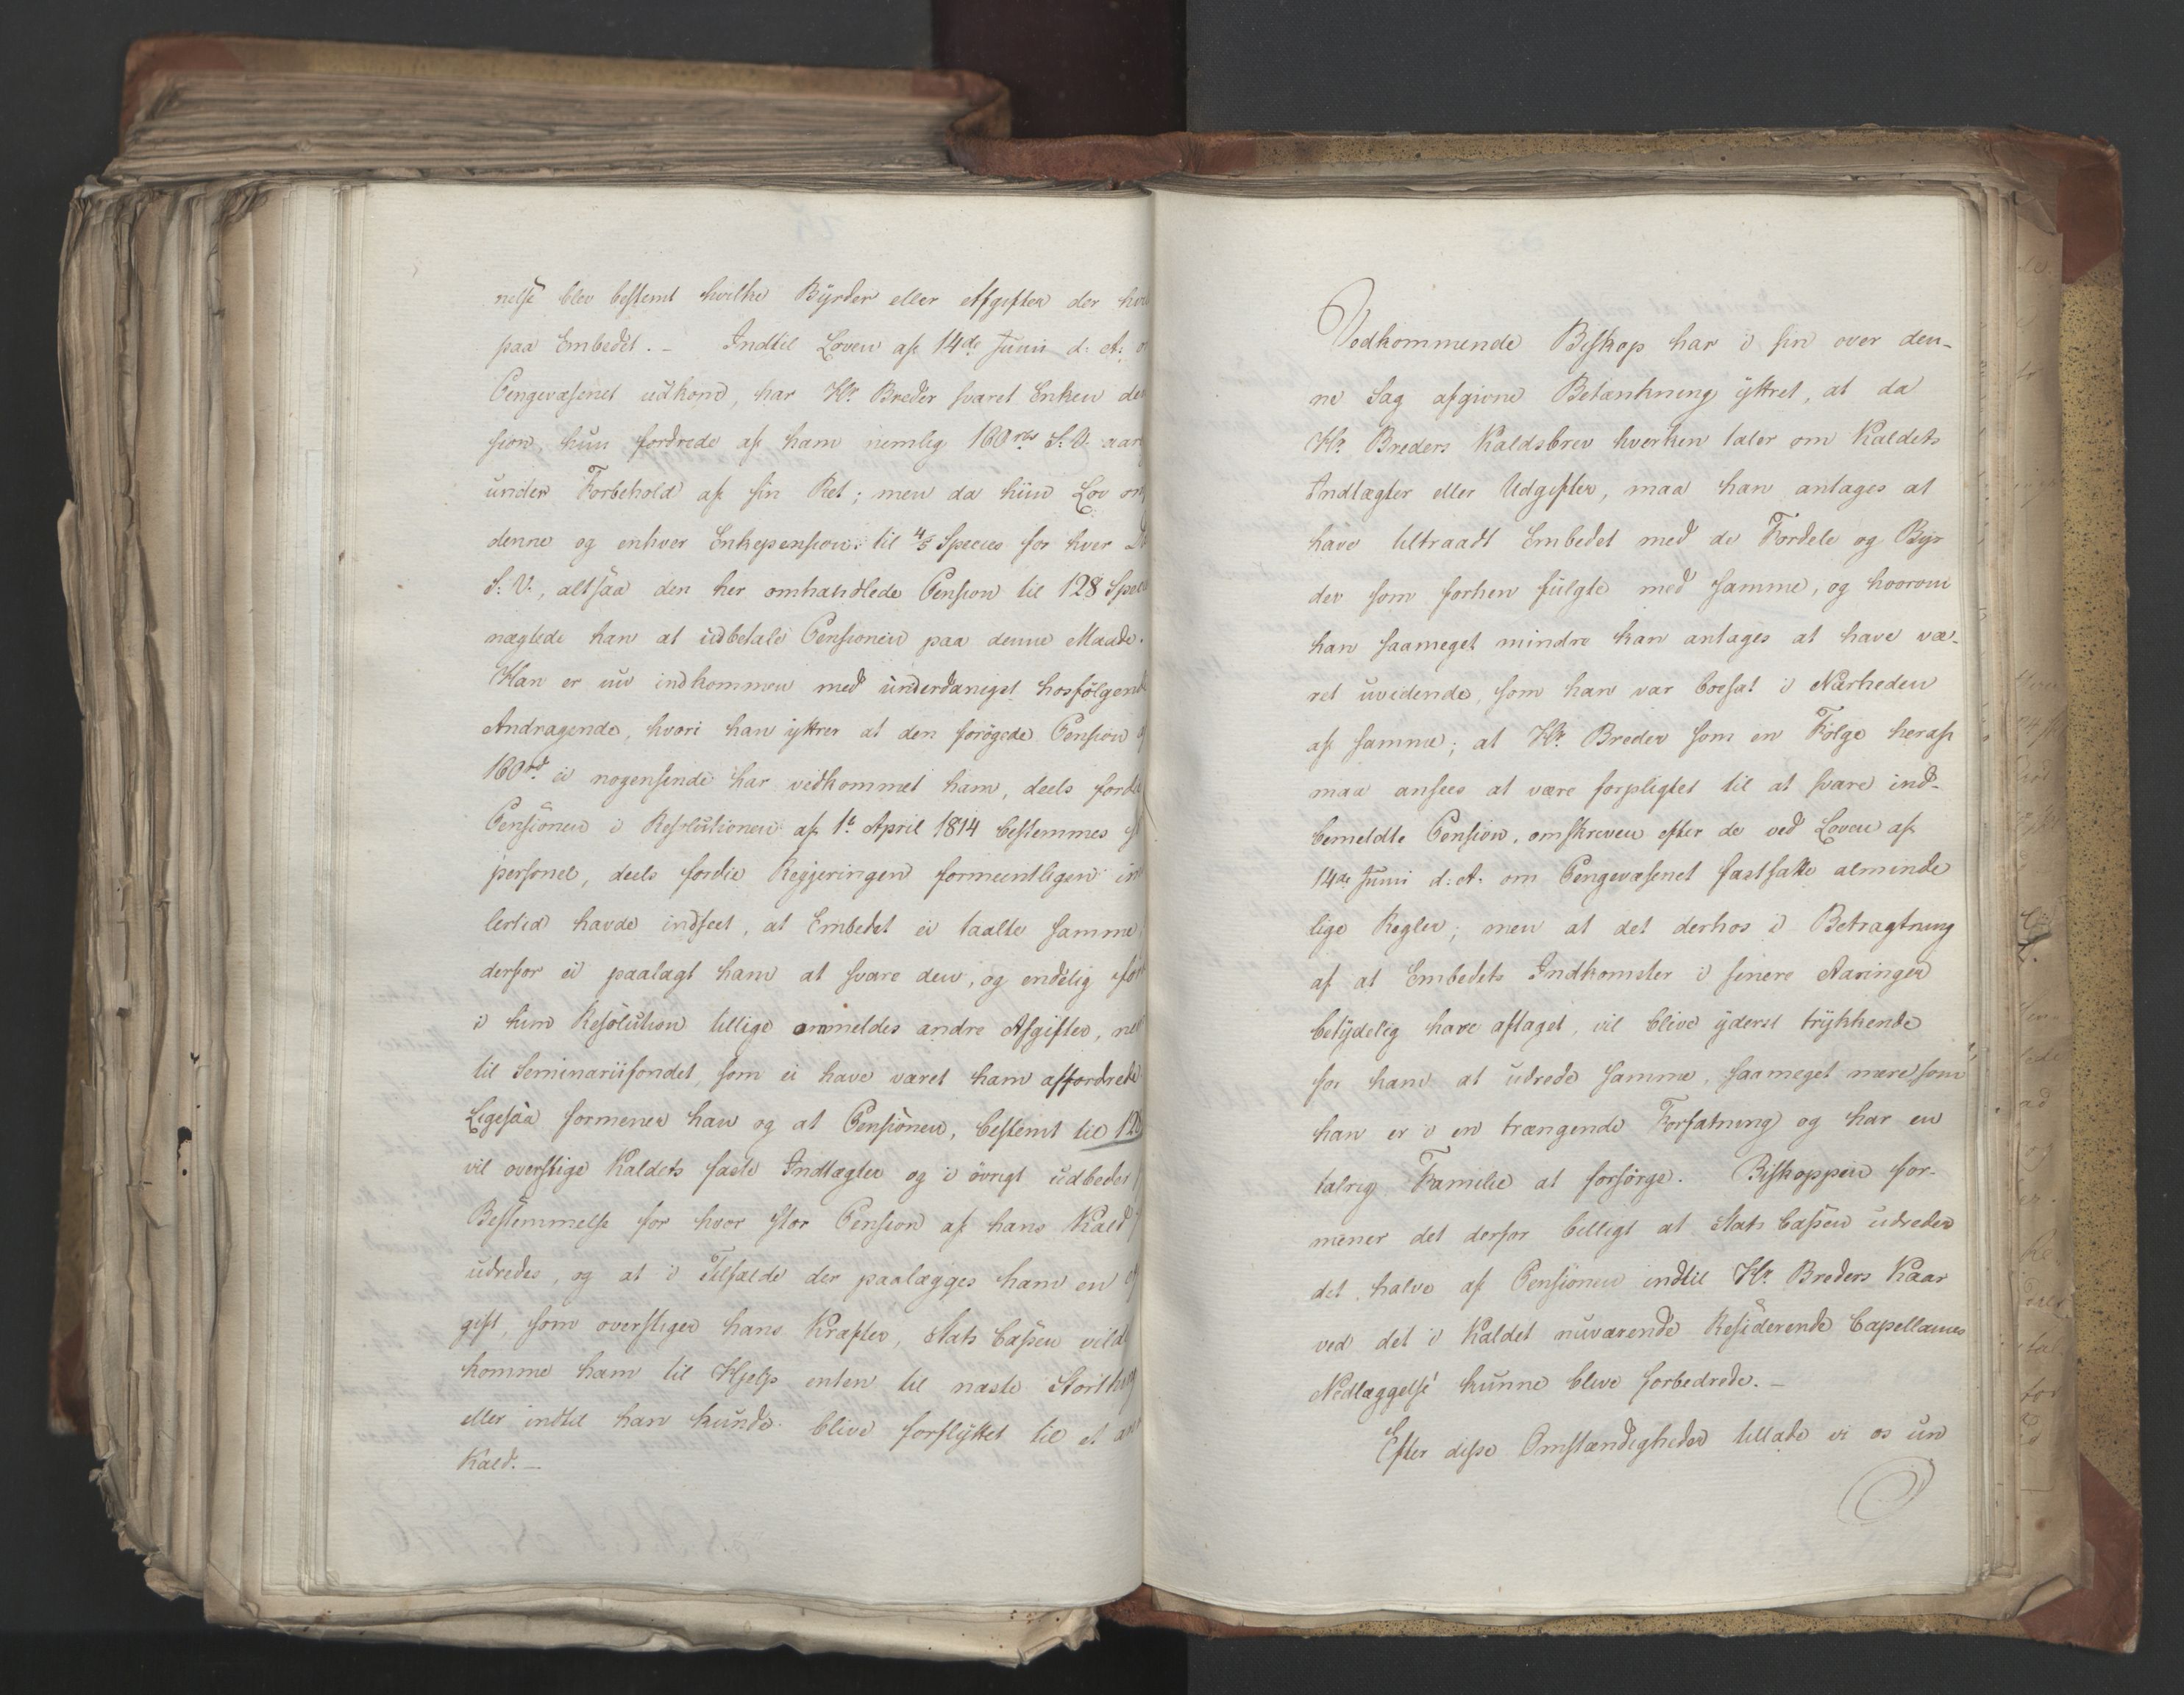 nelse blev bestemt hvilke Byrder eller Afgifter der
paa Embedet. – Indtil Loven af 14de Junii d: A:
Pengevæsenet udkom, har Hr. Breder svaret Enken
sion, hun fordrede af ham nemlig 160rds S: V.
under Forbehold af sin Ret; men da hiin Lov
denne og enhver Enkepension til 4/5 Species for hver
S: V:, altsaa den her omhandlede Pension til 128
nægtede han at udbetale Pensionen paa denne Maade.
Han er nu indkommen med underdanigst hosfølgende
Andragende, hvori han yttrer at den forøgede Pension
160rd. ei nogensinde har vedkommet ham, deels fordi
Pensionen i Resolutionen af 1te April 1814 bestemmes
personel, deels fordie Regjeringen formeentligen
lertid havde indseet, at Embedet ei taalte samme,
derfor ei paalagt ham at svare den, og endelig
i hiin Resolution tillige ommeldes andre Afgifter,
til Seminariifondet, som ei have været ham affordrede
Ligesaa formener han og at Pensionen, bestemt til
vil overstige Kaldets faste Indtægter og i øvrigt udbeder
Bestemmelse for hvor stor Pension af hans Kald
udredes, og at i Tilfælde der paalægges ham en
gift, som overstiger hans Kræfter, Stats Cassen vilde
komme ham til Hjelp enten til næste Storthing
eller indtil han kunde blive forflyttet til et
Kald. –
Vedkommende Biskop har i sin over den-
ne Sag afgivne Betænkning yttret, at da
Hr. Breders Kaldsbrev hverken taler om Kaldets
Indtægter eller Udgifter, maa han antages at
have tiltraadt Embedet med de Fordele og Byr
der som forhen fulgte med samme, og hvorom
han saameget mindre kan antages at have væ-
ret uvidende, som han var boesat i Nærheden
af samme; at Hr. Breder som en Følge heraf
maa ansees at være forpligtet til at svare ind-
bemeldte Pension, omskreven efter de ved Loven af
14de Junii d: A: om Pengevæsenet fastsatte alminde
lige Regler; men at det derhos i Betragtning
af at Embedets Indkomster i senere Aaringer
betydelig have aftaget, vil blive yderst trykkende
for ham at udrede samme, saameget mere som
han er i en trængende Forfatning og har en
talrig Familie at forsørge. Biskoppen for-
mener det derfor billigt at Stats Cassen udreder
det halve af Pensionen indtil Hr. Breders Kaar
ved det i Kaldet nuværende Residerende Capellanies
Nedlæggelse kunne blive forbedrede. –
Efter disse Omstændigheder tillade vi os un